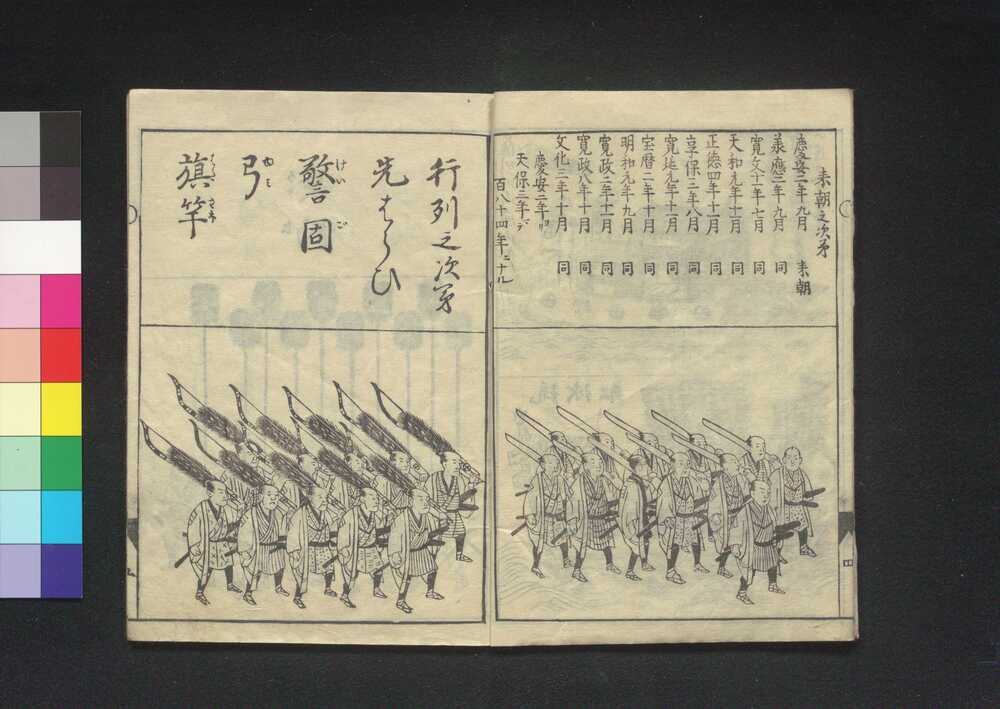 来朝之次第
慶安二年九月 来朝
承應二年九月 同
寛文十一年七月 同
天和元年十一月 同
正徳四年十一月 同
享保三年八月 同
寛延元年十一月 同
宝暦二年十一月 同
明和元年九月 同
寛政二年十一月 同
寛政八年十月 同
文化三年十月 同
慶安二年ヨリ
天保三年マデ
百八十四年ニナル
行列之次第
先はらひ
警固
けいご
弓
ゆミ
旗竿
はたさほ
四